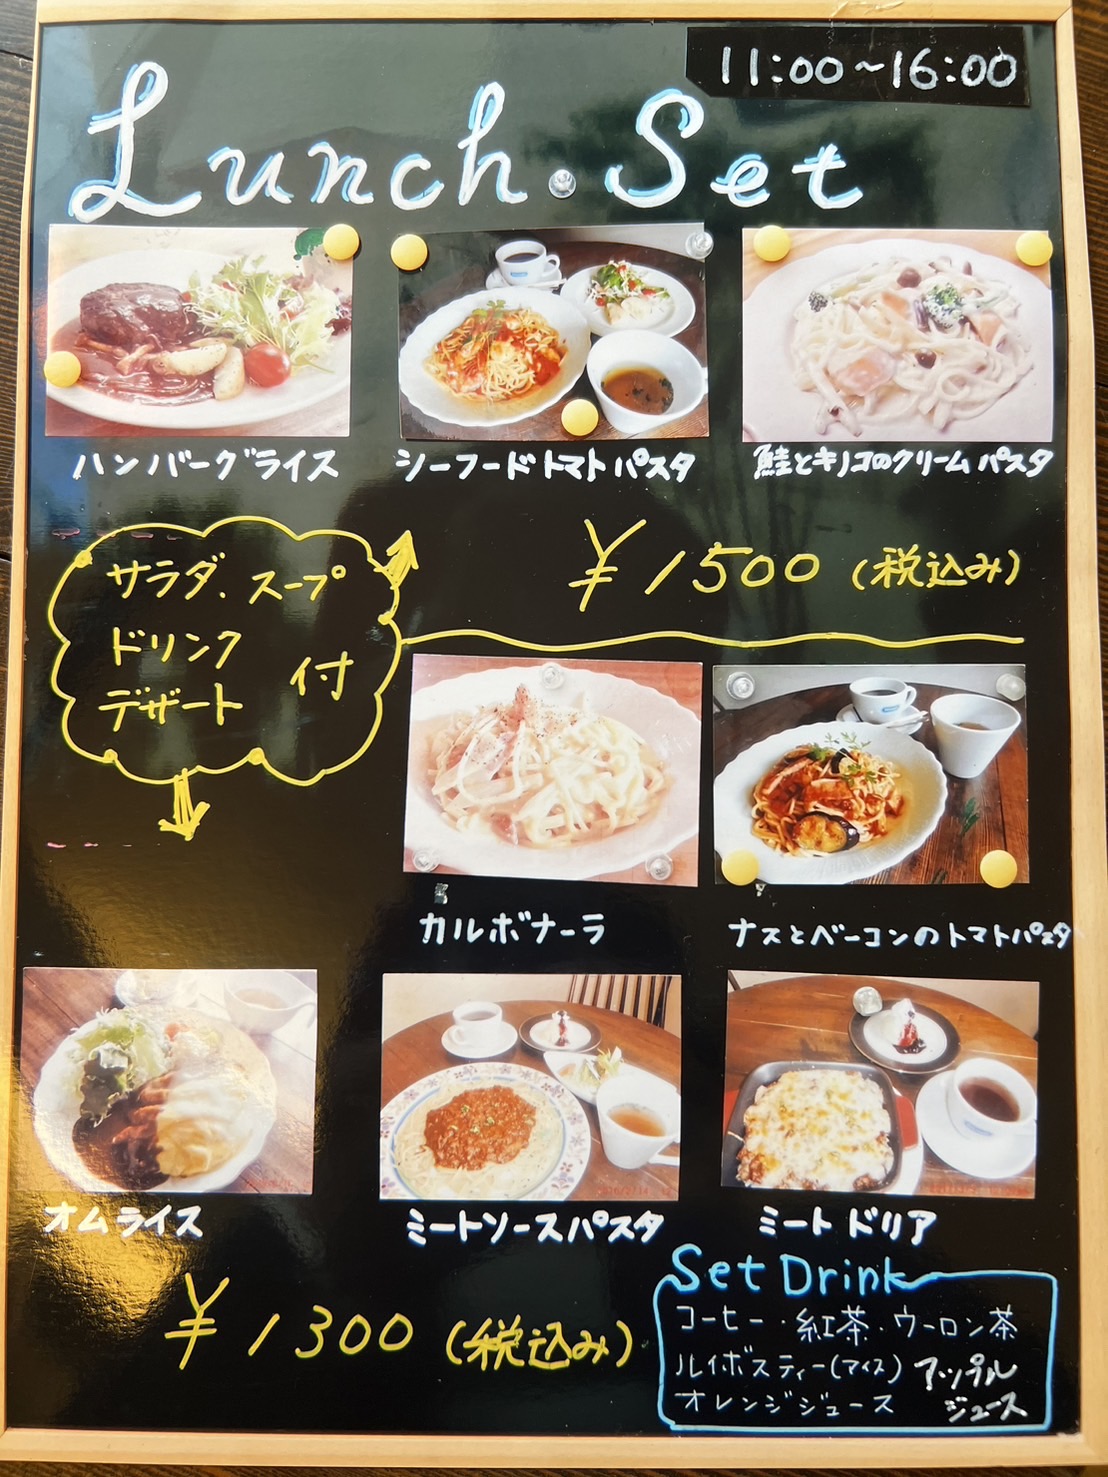 11:00~16:00
Lunch・Set
ハンバーグライス
シーフードトマトパスタ
鮭とキノコのクリームパスタ
¥1500(税込み)
サラダ、スープ
ドリンク
デザート 付
カルボナーラ
ナスとベーコンのトマトパスタ
オムライス
ミートソースパスタ
ミートドリア
¥1300(税込み)
Set Drink
コーヒー・紅茶・ウーロン茶
ルイボスティー(アイス) アップル
オレンジジュース ジュース